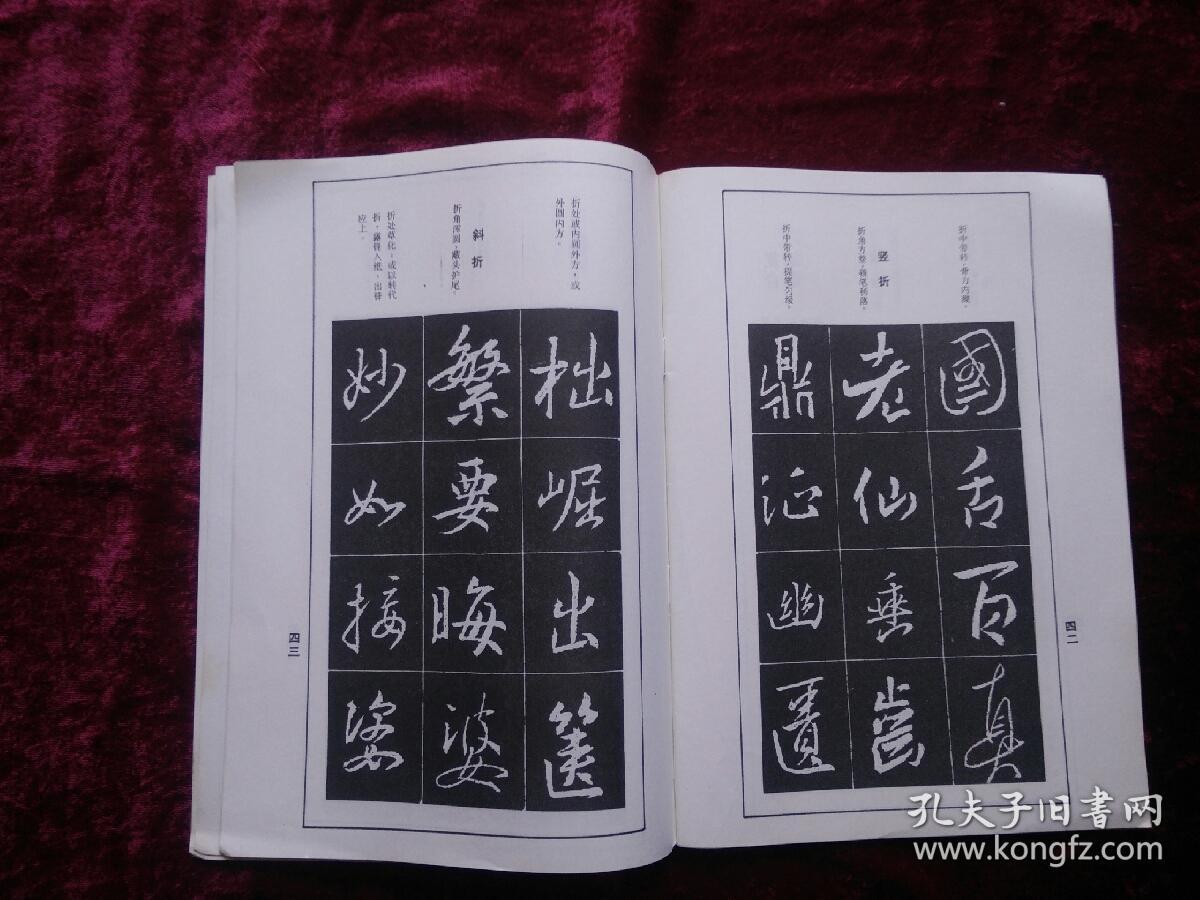 折中带转，骨方内缓。
竖折
折角方整，顿笔稍落。
折中带转，提笔匀缓。
國舌百真
老仙垂齒
鼎沚幽匱
四二
折处或内圆外方，或
外圆内方。
斜折
折角浑圆，藏头护尾。
折处草化，或以转代
折，露锋入纸，出锋
应上。
拙崛出篋
繁要晦婆
妙如接姿
四三
孔夫子旧书网
www.kongfz.com